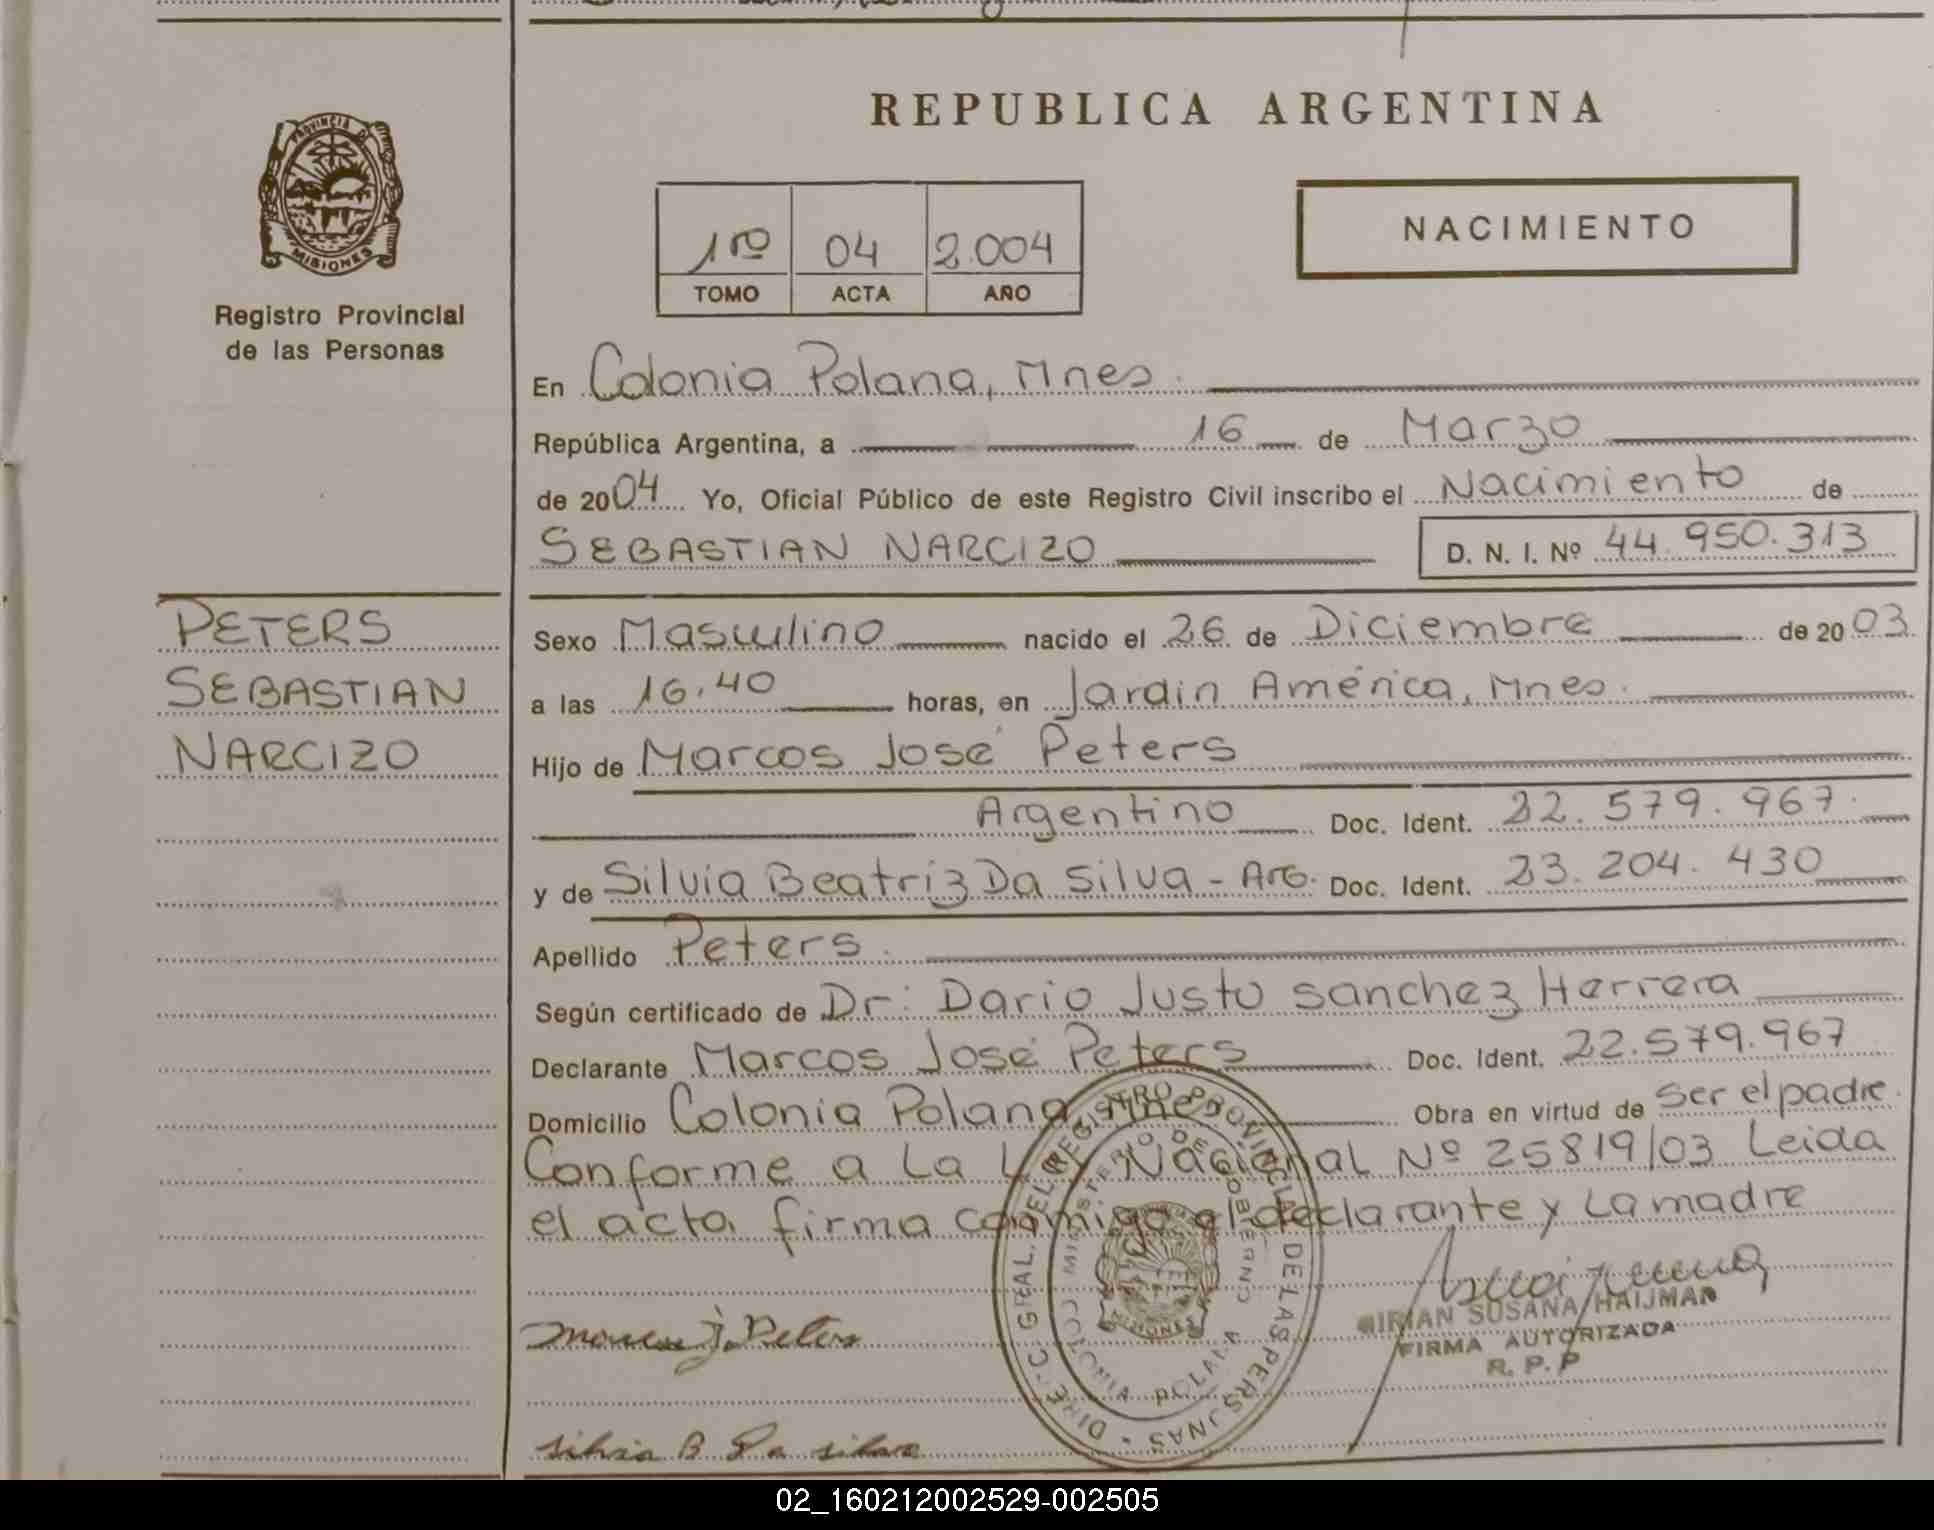 REPUBLICA ARGENTINA
PROVINCIA DE
MISIONES
Registro Provincial
de las Personas
1ro 04 2.004
TOMO ACTA AÑO
NACIMIENTO
En Colonia Polana, Mnes.
República Argentina, a 16 de Marzo
de 2004 Yo, Oficial Público de este Registro Civil inscribo el Nacimiento de
SEBASTIAN NARCIZO D. N. I. Nº 44.950.313
PETERS
SEBASTIAN
NARCIZO
Sexo Masculino nacido el 26 de Diciembre de 2003.
a las 16.40 horas, en Jardin América, Mnes.
Hijo de Marcos José Peters
Argentino Doc. Ident. 22.579.967.
y de Silvia Beatriz Da Silva - Arg. Doc. Ident. 23.204.430
Apellido Peters.
Según certificado de Dr: Dario Justo Sanchez Herrera
Declarante Marcos José Peters Doc. Ident. 22.579.967
Domicilio Colonia Polana, Mnes Obra en virtud de Ser el padre.
Conforme a La Ley Nacional Nº 25819/03 Leida
el acta firma conmigo el declarante y La madre
DIREC. GRAL. DEL REGISTRO PROVINCIAL DE LAS PERSONAS
MINISTERIO DE GOBIERNO
COLONIA POLANA
MISIONES
MIRIAN SUSANA HAIJMAN
FIRMA AUTORIZADA
R. P. P
Marcos J. Peters
Silvia B Da silva
02_160212002529-002505